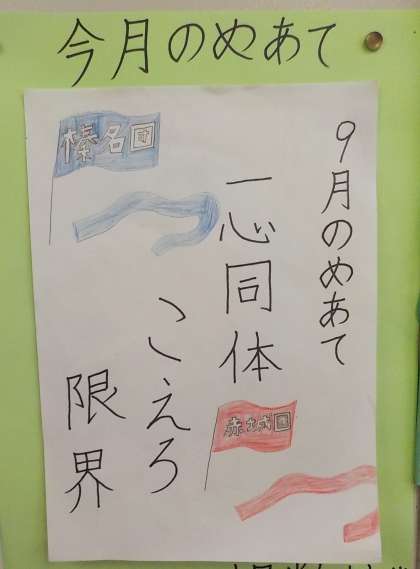 今月のめあて
9月のめあて
一心同体
こえろ
限界
榛名団
赤城団